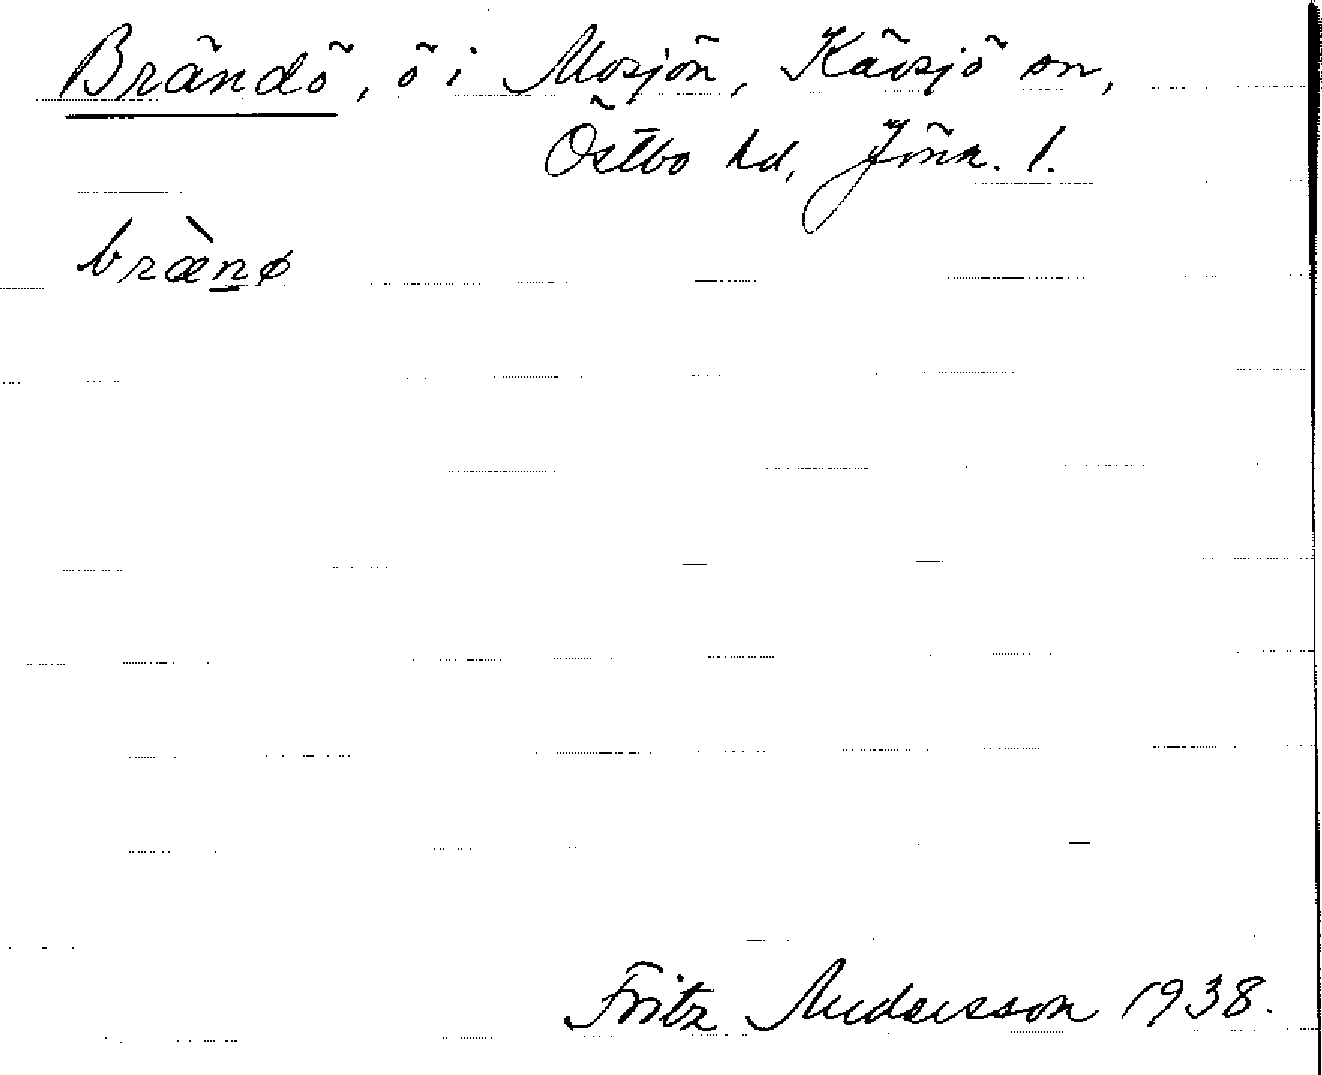 Brändö, ö i Mosjön, Kävsjö sn,
Östbo hd, Jönk. l.
bræ̀n̲ø
Fritz Andersson 1938.